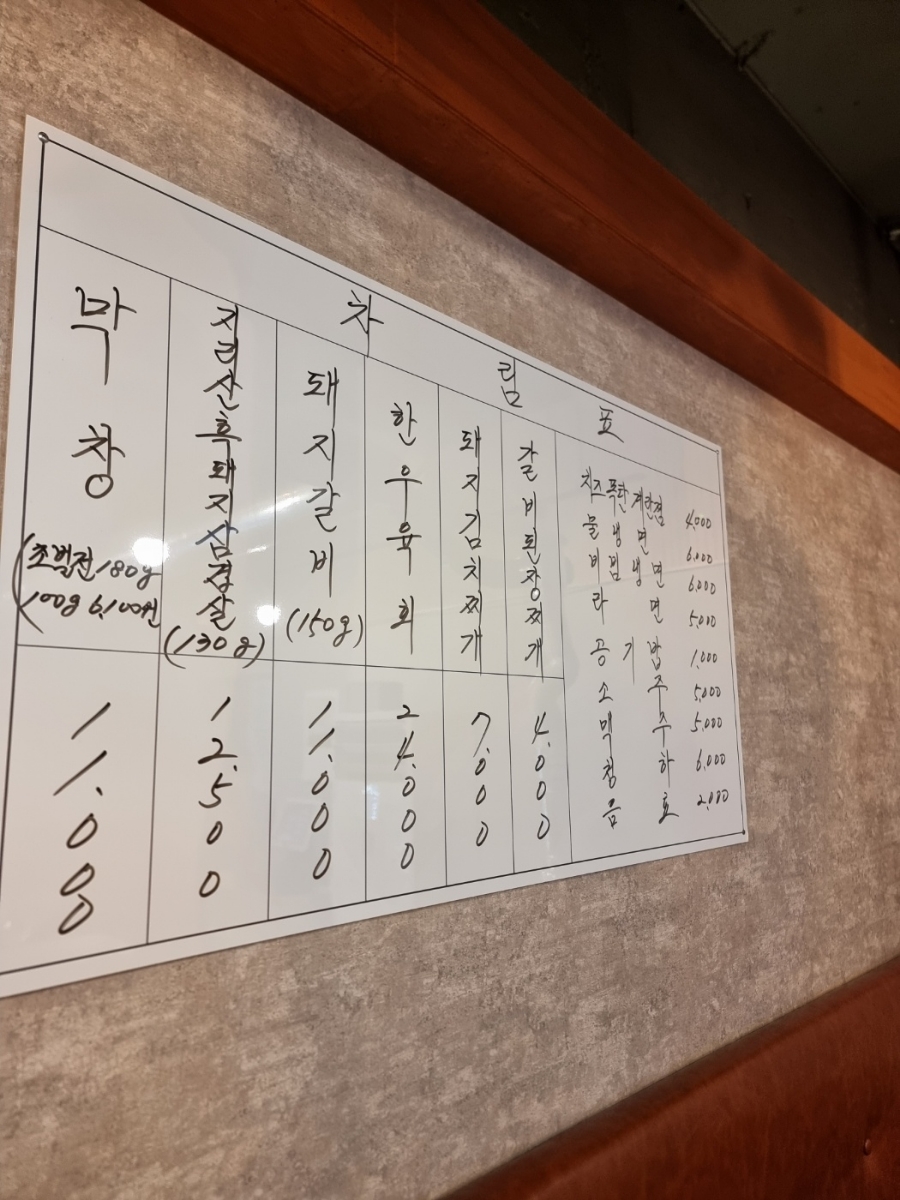 차림표
막창
(초벌전180g
(100g 6,100원
11.000
지리산흑돼지삼겹살
(130g)
12.500
돼지갈비
(150g)
11.000
한우육회
24.000
돼지김치찌개
7.000
갈비된장찌개
4.000
치즈폭탄계란찜 4,000
물냉면 6,000
비빔냉면 6,000
라면 5,000
공기밥 1,000
소주 5,000
맥주 5,000
청하 6,000
음료 2,000